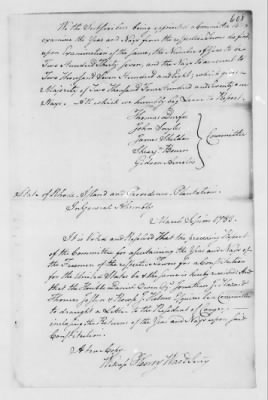 601
We the Subscribers being appointed a Committee to
examine the Yeas and Nays from the respective Towns do find
upon Examination of the same, the Number of Yeas to be
Two Hundred Thirty Seven, and the Nays to amount to
Two Thousand Seven Hundred and Eight, which gives a
Majority of Two Thousand Four Hundred and Seventy one
Nays. All which we humbly beg Leave to Report.
Thomas
John Sayles
James Sheldon
Bowen
Gideon
Committee
State of Rhode Island and Providence Plantations.
In General Assembly
March 1788.
It is Voted and Resolved that the preceeding Report
of the Committee for ascertaining the Yeas and Nays of
the Freemen of the respective Towns for a Constitution
for the United States be & the same is hereby received And that
the Honble Daniel Owen Jonathan J. Hazard
Thomas Joslen & Rowse J. Helme Esquires be a Committee
to draught a Letter to the President of Congress,
inclosing the Returns of the Yeas and Nays upon said
Constitution.
A true Copy
Witness Henry Ward Secry